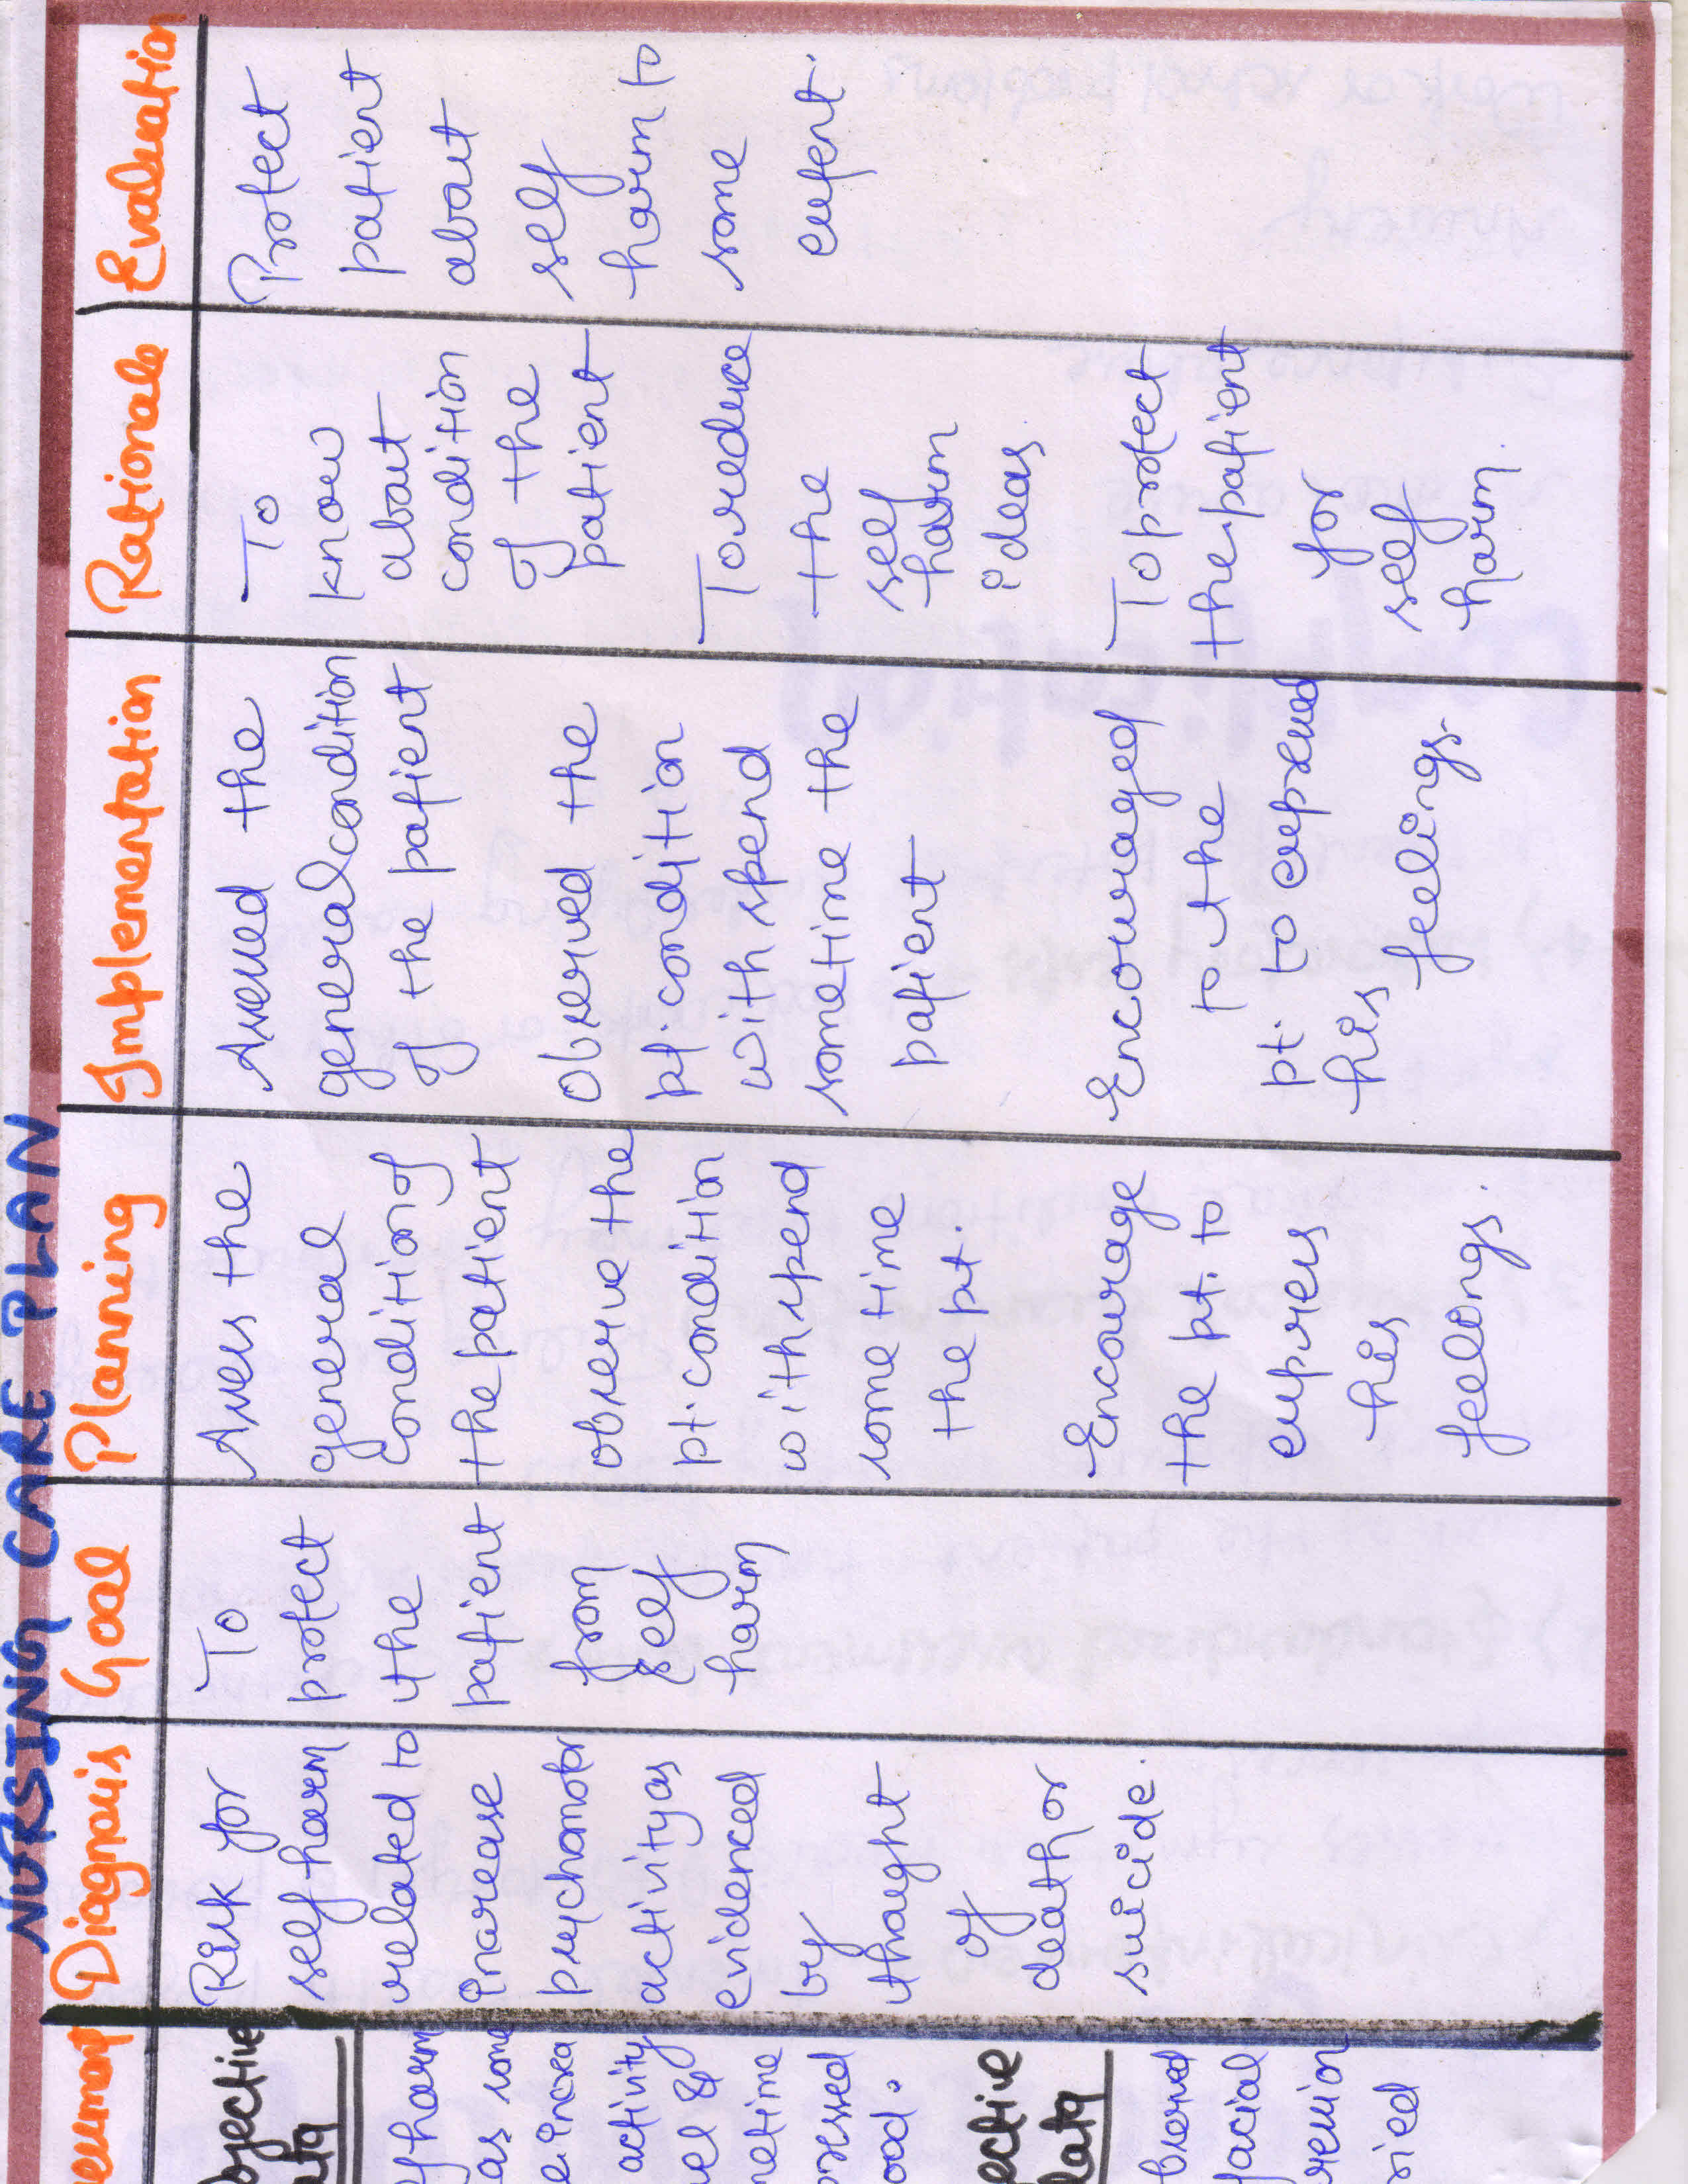 NURSING CARE PLAN
Diagnosis
Risk for
self harm
related to
increase
psychomotor
activity as
evidenced
by
thought
of
death or
suicide.
Goal
To
protect
the
patient
from
self
harm
Planning
Assess the
general
condition of
the patient
observe the
pt. condition
with spend
some time
the pt.
Encourage
the pt. to
express
his
feelings.
Implementation
Assessed the
general condition
of the patient
Observed the
pt. condition
with spend
sometime the
patient
Encouraged
to the
pt. to expressed
his
feelings.
Rationale
To
know
about
condition
of the
patient
To reduce
the
self
harm
ideas.
To protect
the patient
for
self
harm.
Evaluation
Protect
patient
about
self
harm to
some
extent.
harm
as some
activity
&
facial